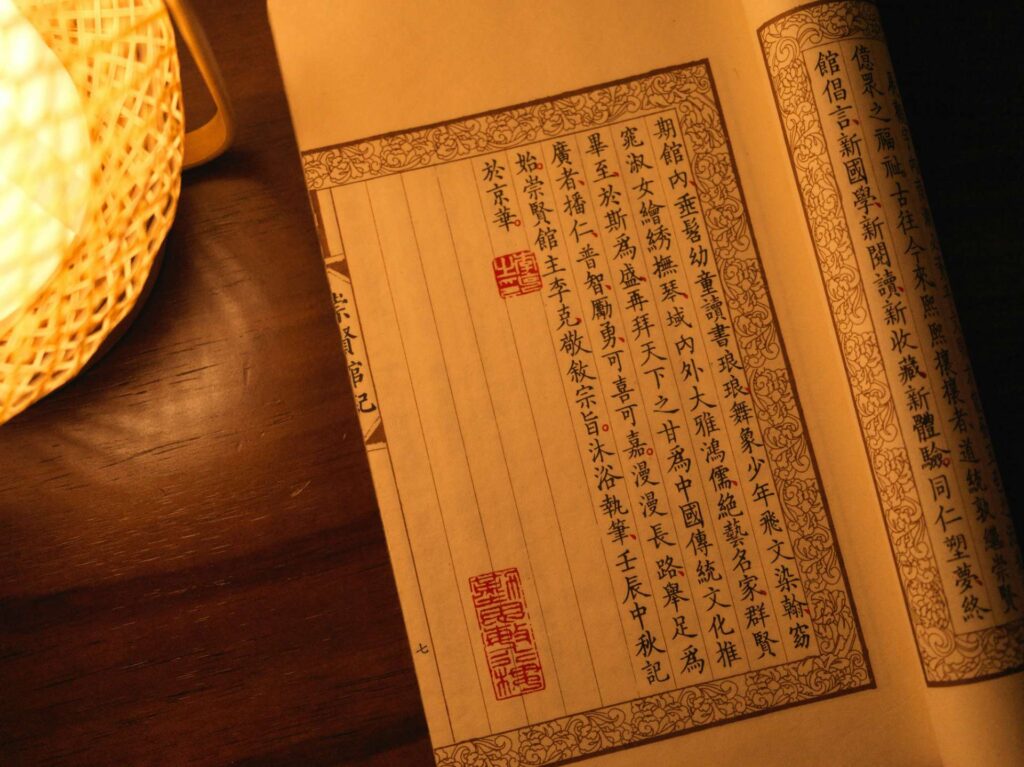 億眾之福祉、古往今來、熙熙攘攘者、道統孰繼、崇賢
館倡言、新國學、新閱讀、新收藏、新體驗。同仁塑夢、終
期館內、垂髫幼童、讀書琅琅、舞象少年、飛文染翰、窈
窕淑女、繪綉撫琴、域內外大雅鴻儒、絕藝名家、群賢
畢至、於斯為盛、再拜天下之甘為中國傳統文化推
廣者、播仁、普智、勵勇、可喜可嘉。漫漫長路、舉足為
始。崇賢館主李克敬敘宗旨。沐浴執筆、壬辰中秋記
於京華。
崇賢館記
七